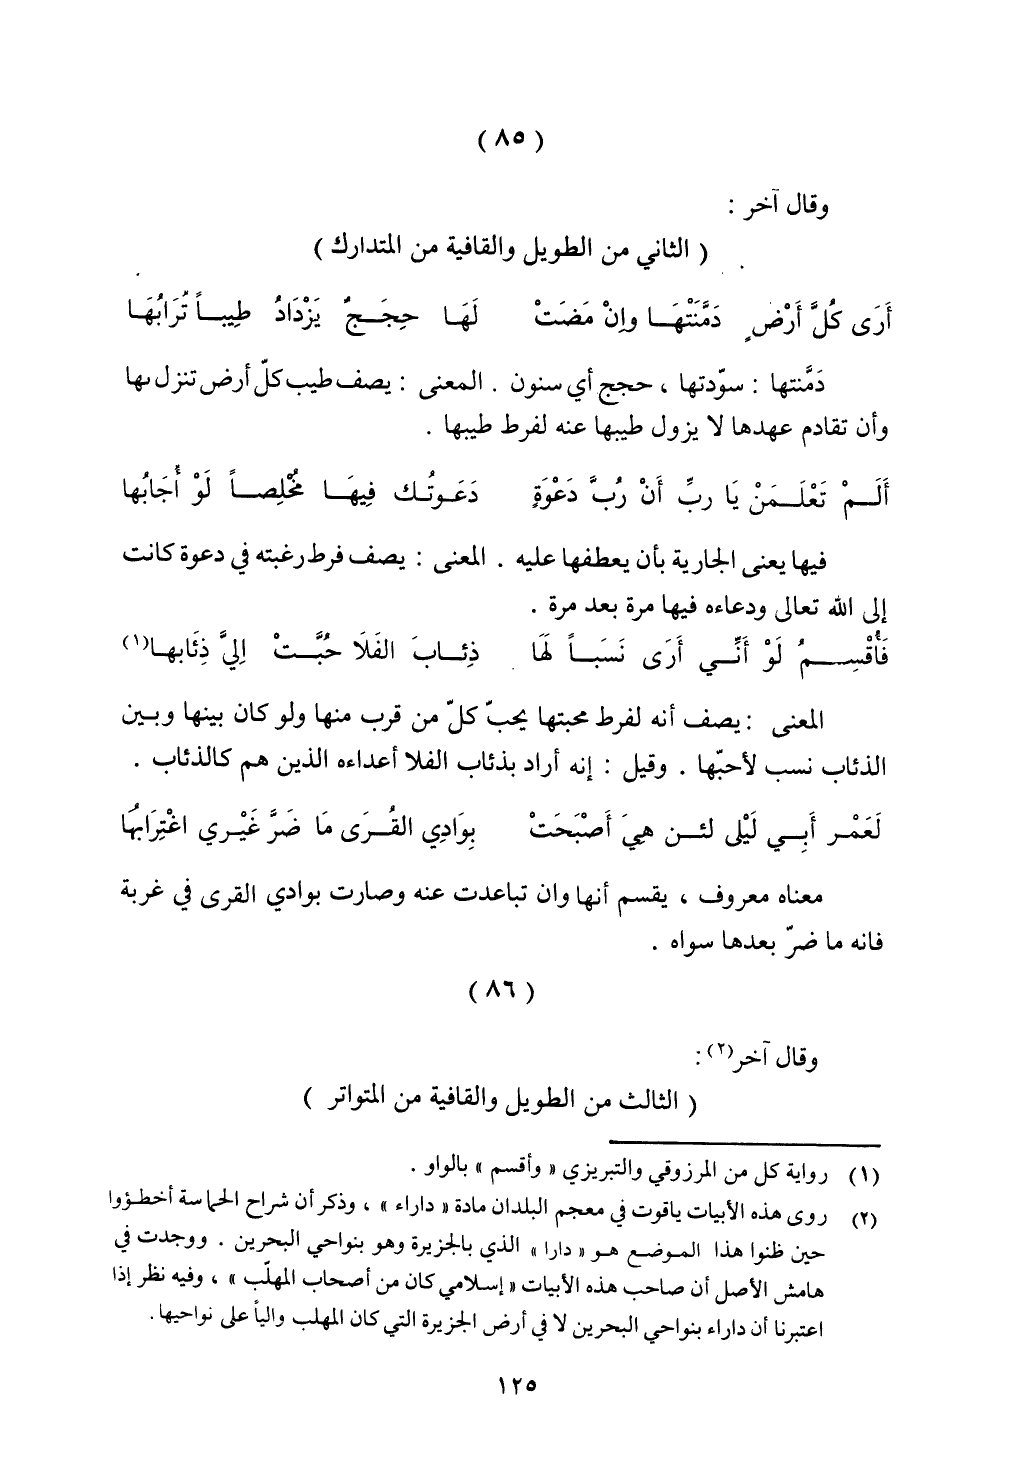 ( ٨٥ )
وقال آخر :
( الثاني من الطويل والقافية من المتدارك )
أَرَى كُلَّ أَرْضٍ دَمَّنَتْهَــا وإِنْ مَضَتْ لَهَــا حِجَــجٌ يَزْدَادُ طِيبــاً تُرَابُهَا
دَمَّنتها : سوّدتها ، حجج أي سنون . المعنى : يصف طيب كلّ أرض تنزل بها
وأن تقادم عهدها لا يزول طيبها عنه لفرط طيبها .
أَلَــمْ تَعْلَــمَنْ يَا ربِّ أَنْ رُبَّ دَعْوَةٍ دَعَــوتُــك فِيهَــا مُخْلِصــاً لَوْ أُجَابُها
فيها يعنى الجارية بأن يعطفها عليه . المعنى : يصف فرط رغبته في دعوة كانت
إلى الله تعالى ودعاءه فيها مرة بعد مرة .
فَأُقْسِــــمُ لَوْ أَنِّــي أَرَى نَسَبــاً لَهَا ذِئــابَ الفَلَا حُبَّــتْ إِليَّ ذِئَابهــا(١)
المعنى : يصف أنه لفرط محبتها يحبّ كلّ من قرب منها ولو كان بينها وبــين
الذئاب نسب لأحبّها . وقيل : إنه أراد بذئاب الفلا أعداءه الذين هم كالذئاب .
لَعَمْــر أَبــي لَيْلى لئــن هِيَ أَصْبَحَتْ بِوَادِي القُــرَى مَا ضَرَّ غَيْــرِي اغْتِرَابُهَا
معناه معروف ، يقسم أنها وان تباعدت عنه وصارت بوادي القرى في غربة
فانه ما ضرّ بعدها سواه .
( ٨٦ )
وقال آخر(٢) :
( الثالث من الطويل والقافية من المتواتر )
(١) رواية كل من المرزوقي والتبريزي « وأقسم » بالواو .
(٢) روى هذه الأبيات ياقوت في معجم البلدان مادة « داراء » ، وذكر أن شراح الحماسة أخطؤوا
حين ظنوا هذا الموضع هو « دارا » الذي بالجزيرة وهو بنواحي البحرين . ووجدت في
هامش الأصل أن صاحب هذه الأبيات « إسلامي كان من أصحاب المهلّب » ، وفيه نظر إذا
اعتبرنا أن داراء بنواحي البحرين لا في أرض الجزيرة التي كان المهلب والياً على نواحيها .
١٢٥